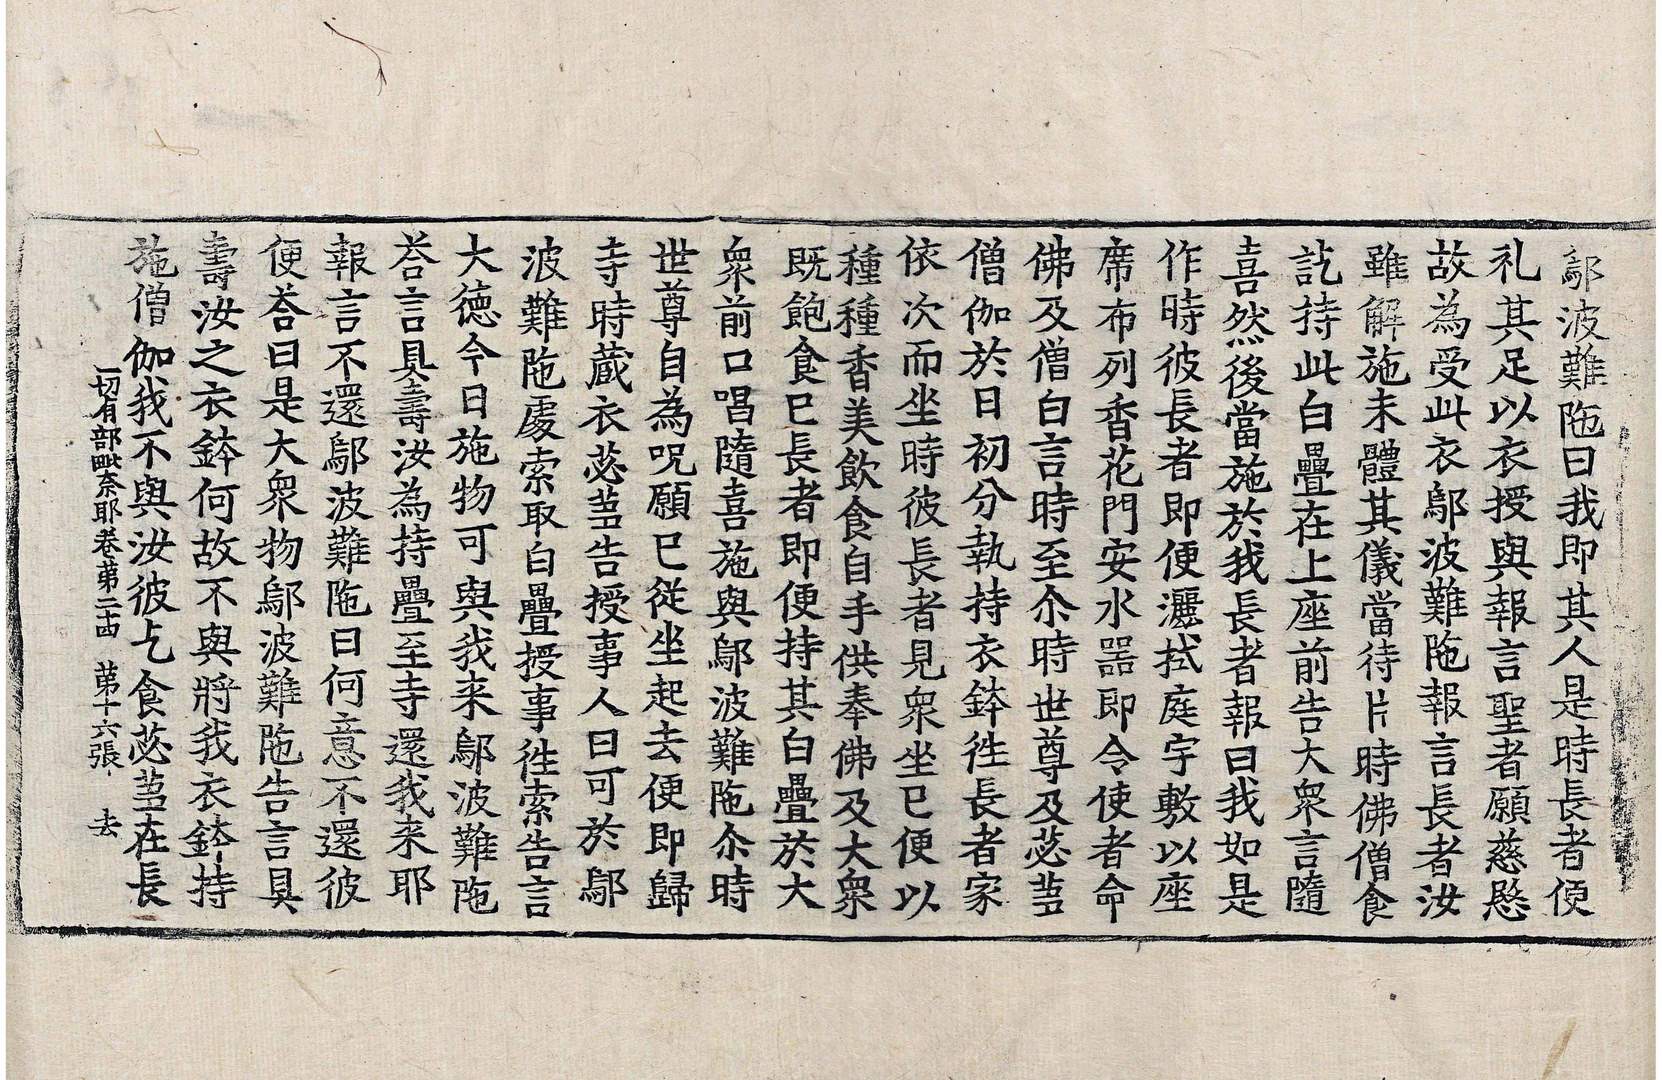 鄔波難陁曰我即其人是時長者便
礼其足以衣授與報言聖者願慈愍
故為受此衣鄔波難陁報言長者汝
雖解施未體其儀當待片時佛僧食
訖持此白疊在上座前告大衆言隨
喜然後當施於我長者報曰我如是
作時彼長者即便灑拭庭宇敷以座
席布列香花門安水器即令使者命
佛及僧白言時至尒時世尊及苾芻
僧伽於日初分執持衣鉢徃長者家
依次而坐時彼長者見衆坐已便以
種種香美飲食自手供奉佛及大衆
既飽食已長者即便持其白疊於大
衆前口唱隨喜施與鄔波難陁尒時
世尊自為呪願已從坐起去便即歸
寺時藏衣苾芻告授事人曰可於鄔
波難陁處索取白疊授事徃索告言
大德今日施物可與我来鄔波難陁
荅言具壽汝為持疊至寺還我来耶
報言不還鄔波難陁曰何意不還彼
便荅曰是大衆物鄔波難陁告言具
壽汝之衣鉢何故不與將我衣鉢持
施僧伽我不與汝彼乞食苾芻在長
一切有部毗奈耶卷苐二十四 苐十六張 去